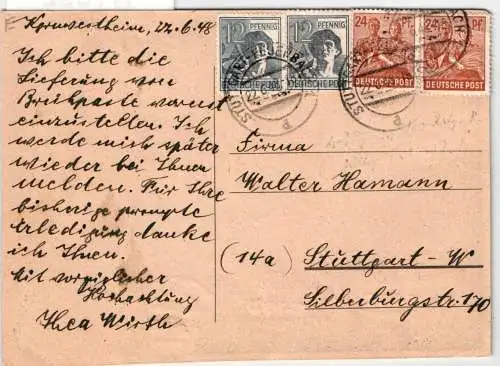 Kornwestheim, 22.6.48
Ich bitte die
Lieferung von
Breitpaste vorerst
einzustellen. Ich
werde mich später
wieder bei Ihnen
melden. Für Ihre
bisherige prompte
Erledigung danke
ich Ihnen.
Mit vorzüglicher
Hochachtung
Thea Wirth
12 PFENNIG
12 PFENNIG
24 PF
DEUTSCHE POST
24 PF
DEUTSCHE POST
Firma
Walter Hamann
(14a) Stuttgart-W
Silberburgstr. 170